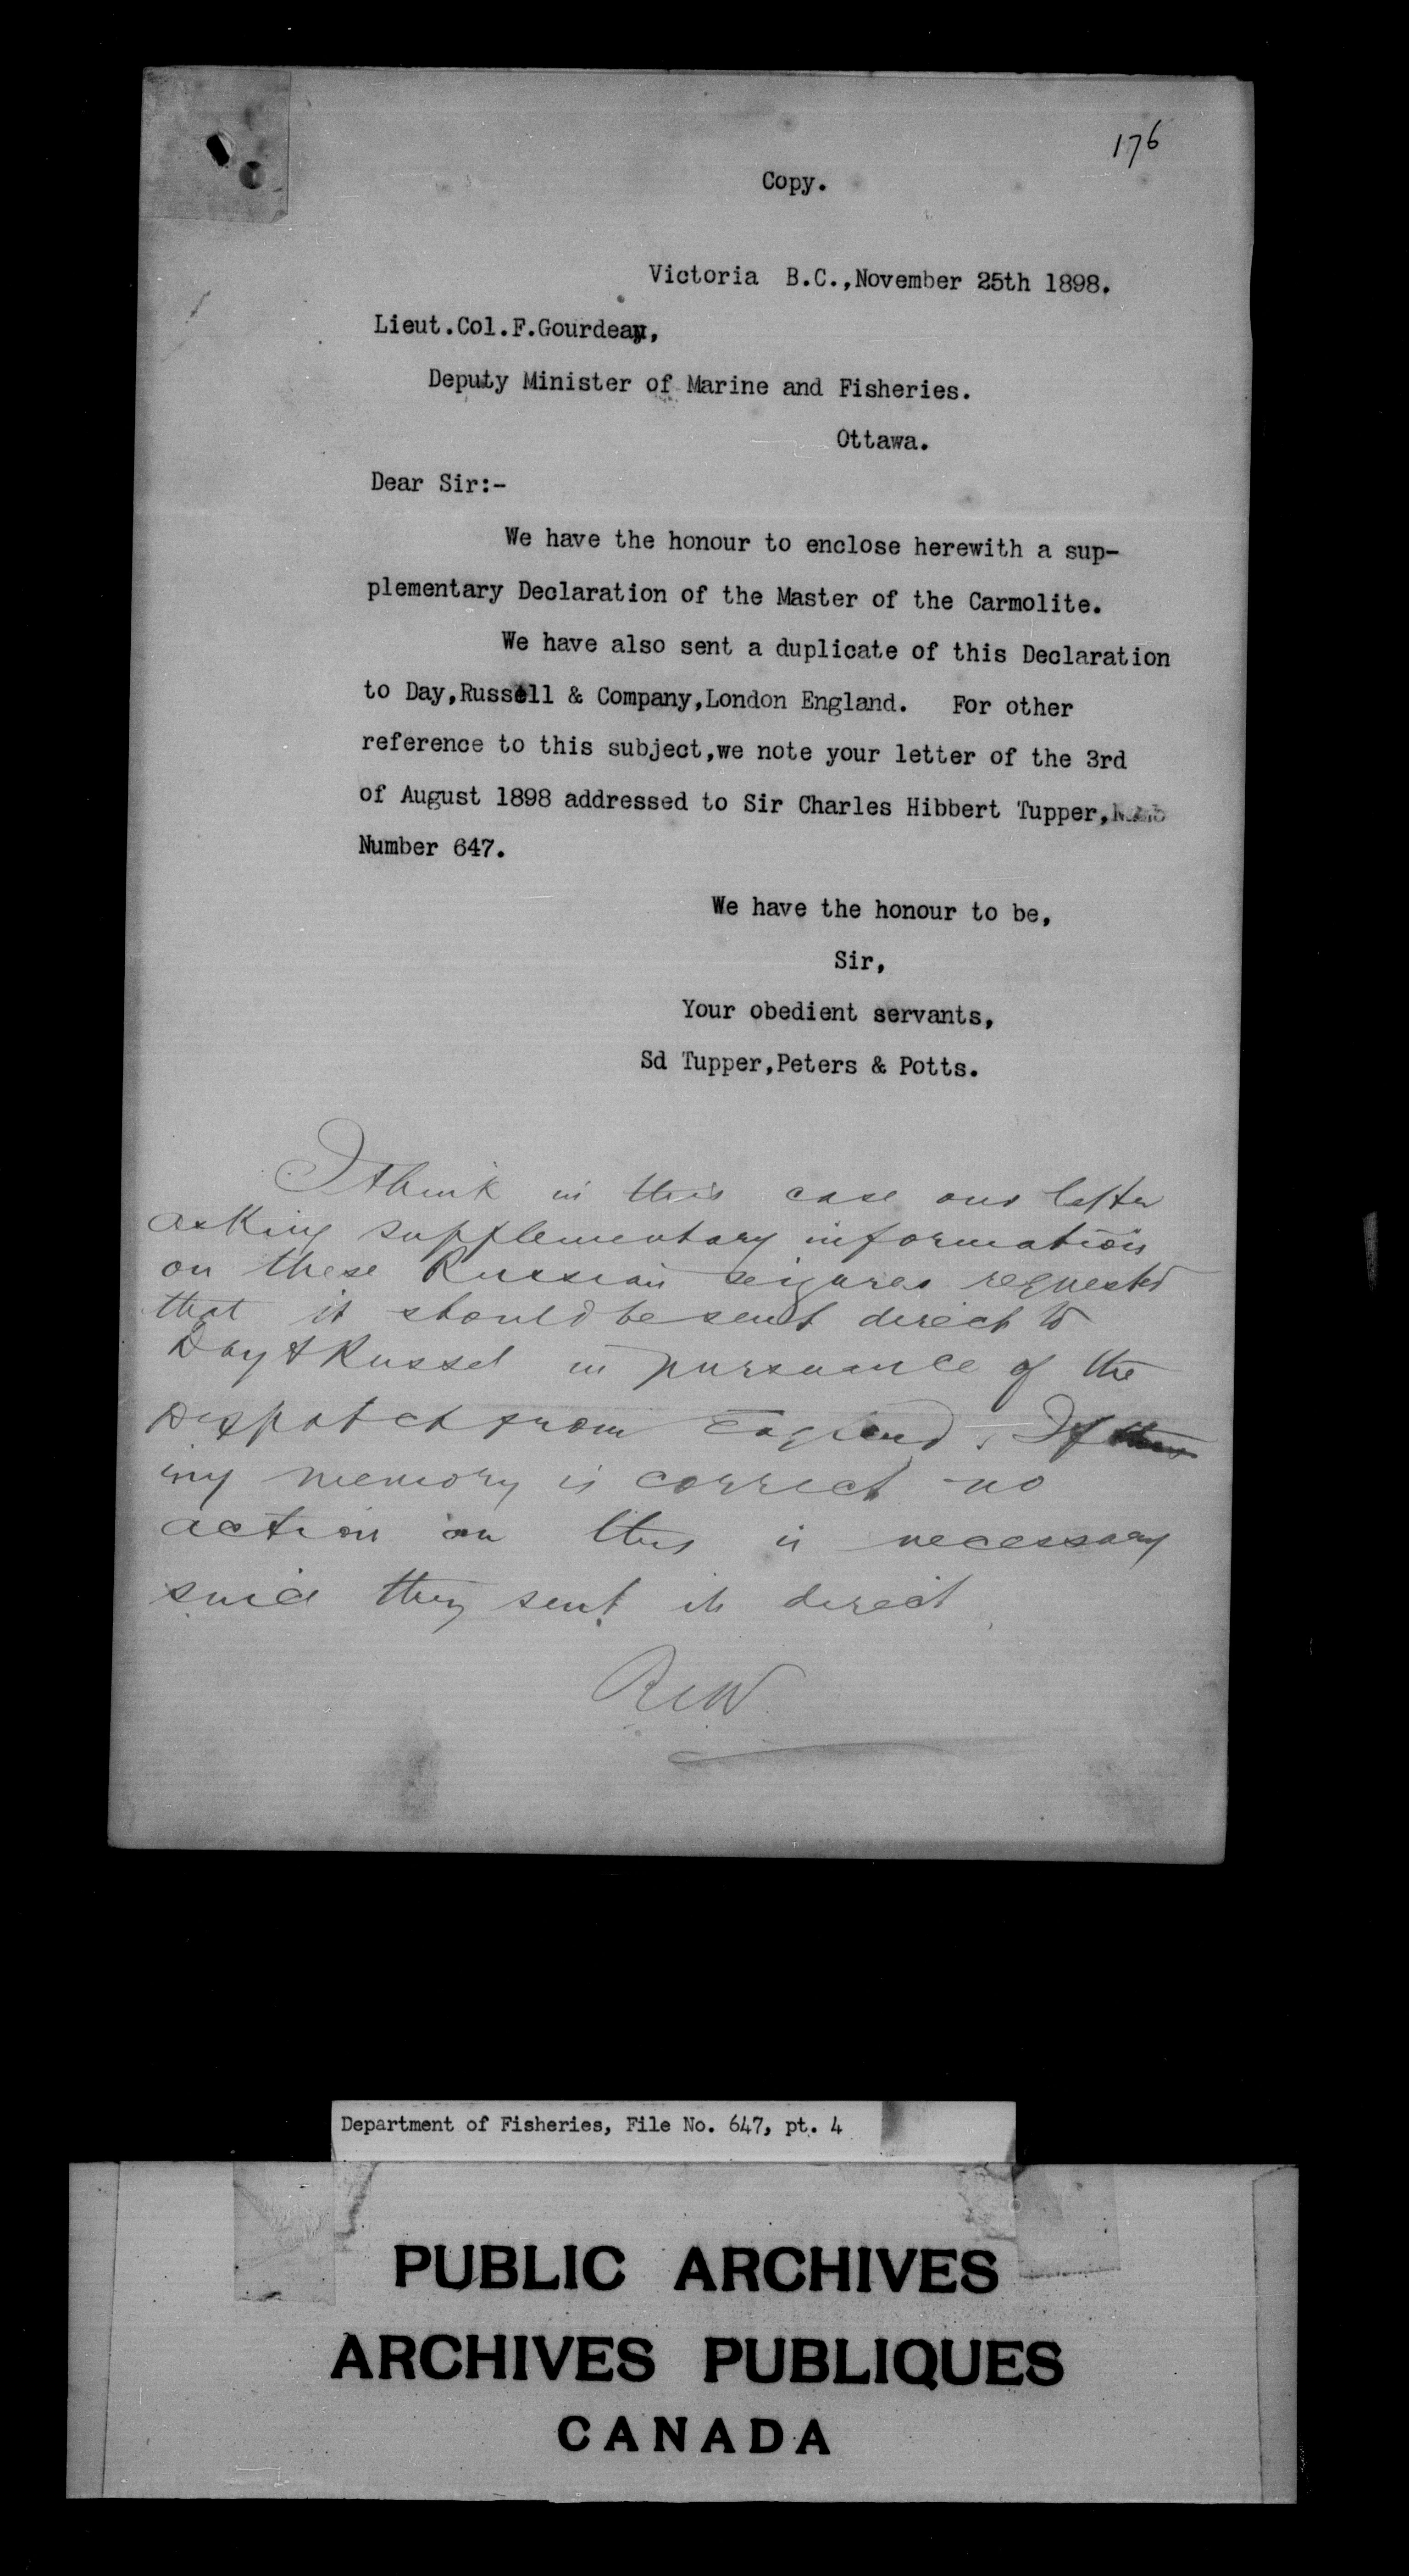 176
Copy.
Victoria B.C.,November 25th 1898.
Lieut.Col.F.Gourdeau,
Deputy Minister of Marine and Fisheries.
Ottawa.
Dear Sir:-
We have the honour to enclose herewith a sup-
plementary Declaration of the Master of the Carmolite.
We have also sent a duplicate of this Declaration
to Day,Russell & Company,London England. For other
reference to this subject,we note your letter of the 3rd
of August 1898 addressed to Sir Charles Hibbert Tupper,
Number 647.
We have the honour to be,
Sir,
Your obedient servants,
Sd Tupper,Peters & Potts.
I think in this case our letter
asking supplementary information
on these Russian seizures requested
that it should be sent direct to
Day & Russel in pursuance of the
Dispatch from England. If
my memory is correct no
action on this is necessary
since they sent it direct
Department of Fisheries, File No. 647, pt. 4
PUBLIC ARCHIVES
ARCHIVES PUBLIQUES
CANADA